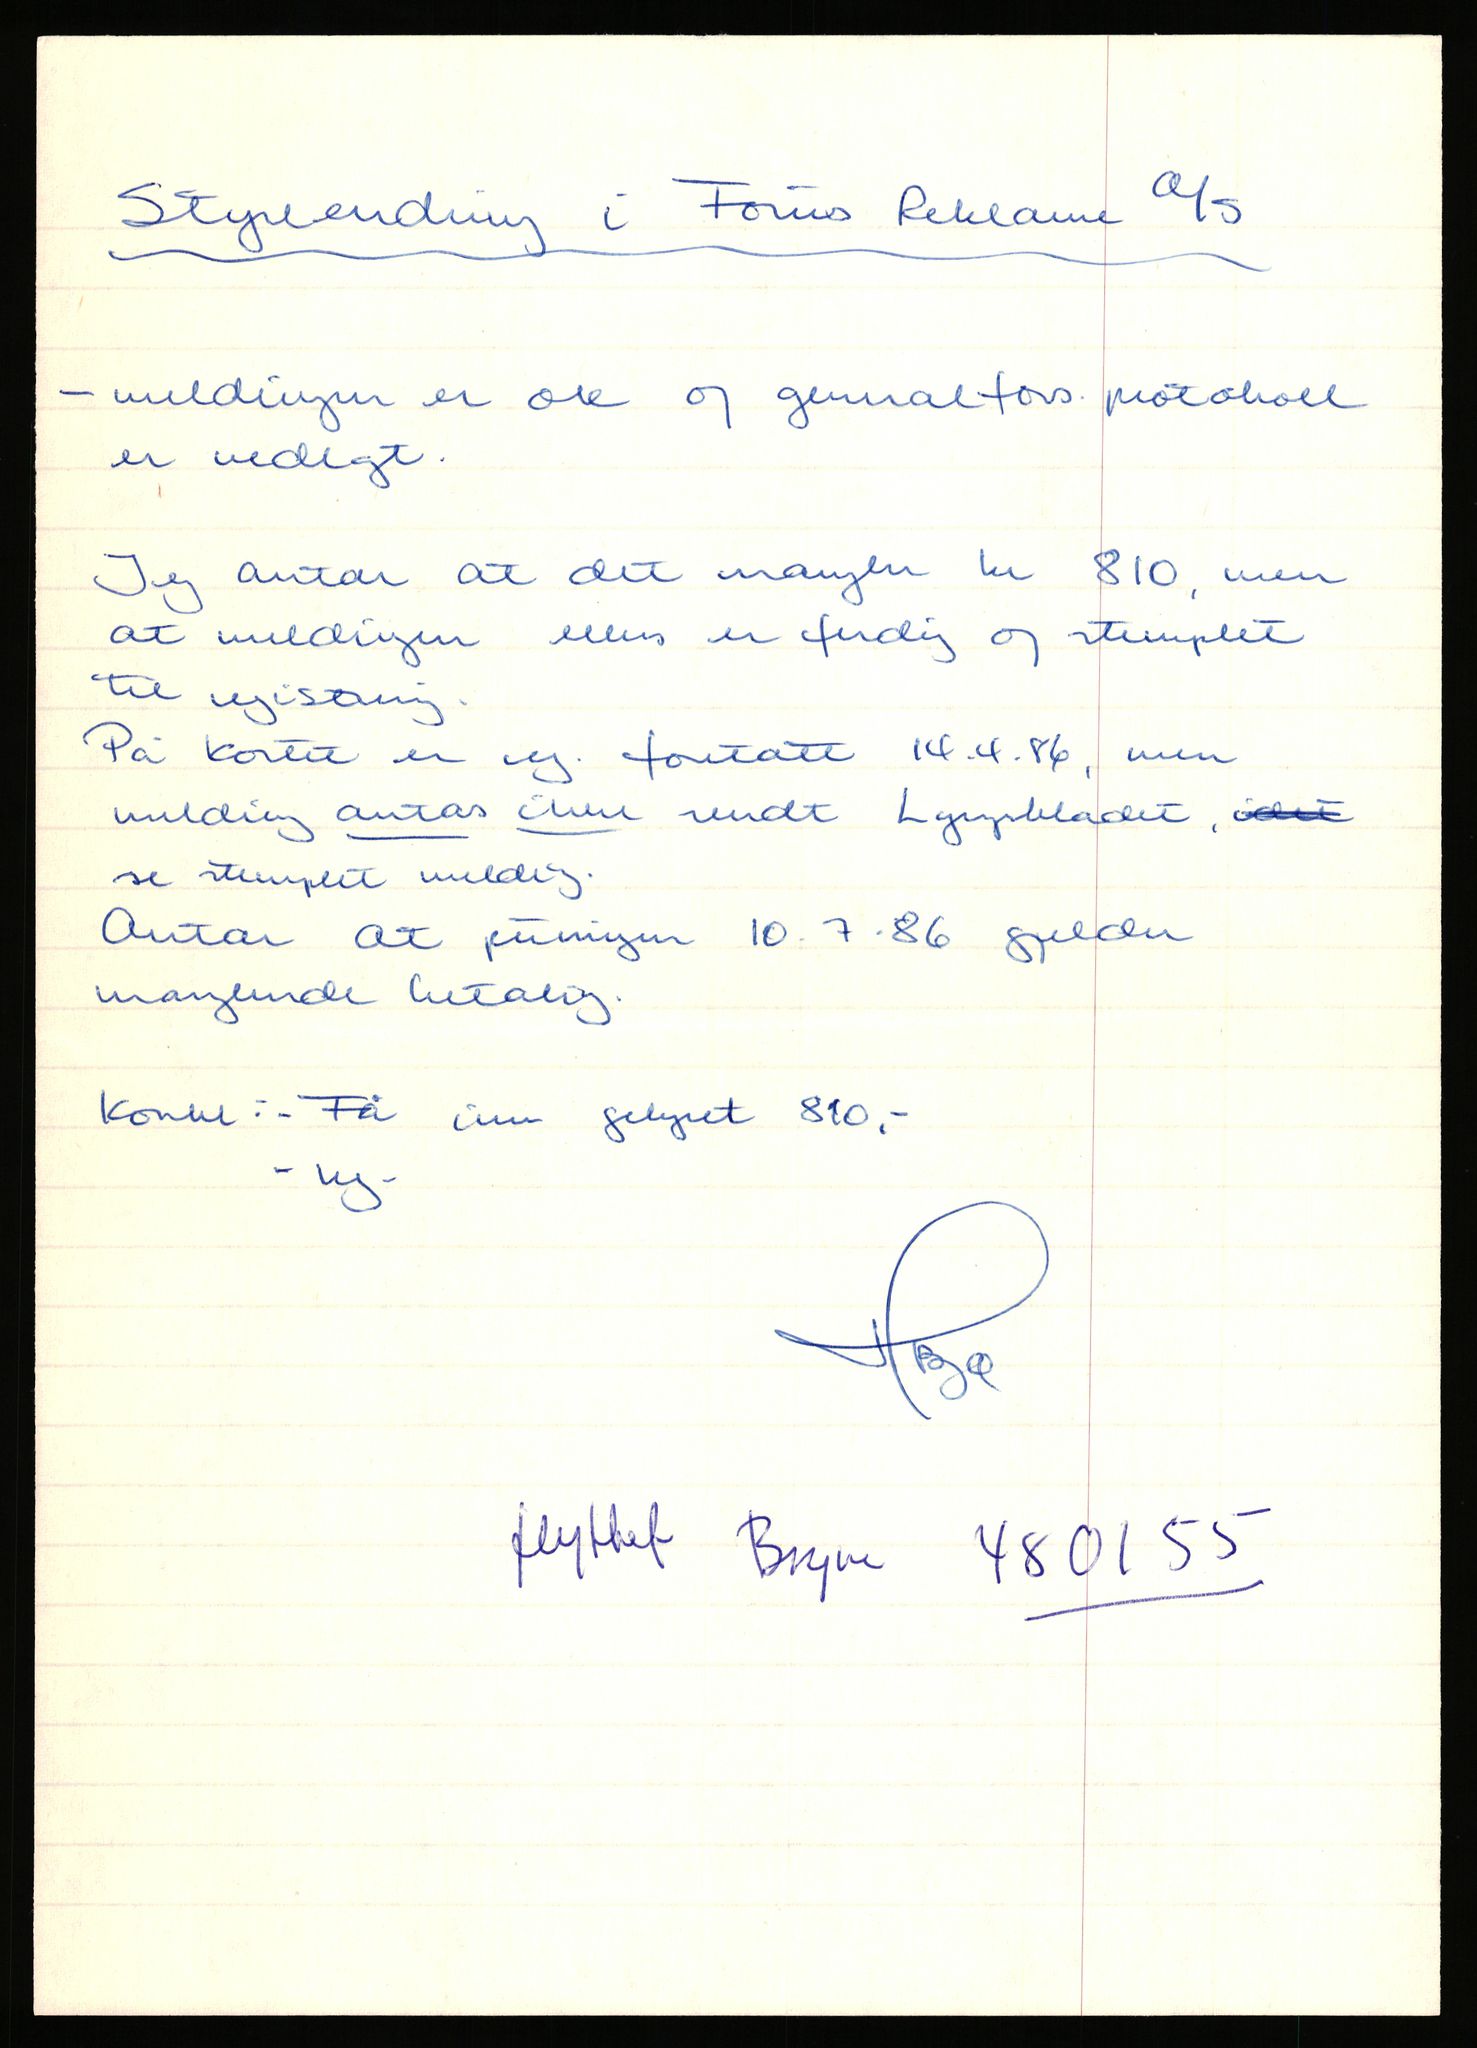 Styreendring i Forus Reklame A/S
- meldingen er ok og generalfors. protokoll
er vedlagt.
Jeg antar at det mangler kr 810, men
at meldingen ellers er ferdig og stemplet
til registrering.
På kortet er reg. foretatt 14.4.86, men
melding antas ikke sendt Lysingsbladet,
se stemplet melding.
Antar at purringen 10.7.86 gjelder
manglende betaling.
Konkl: - Få inn gebyret 810,-
- reg -
flyttet Bryne 480155